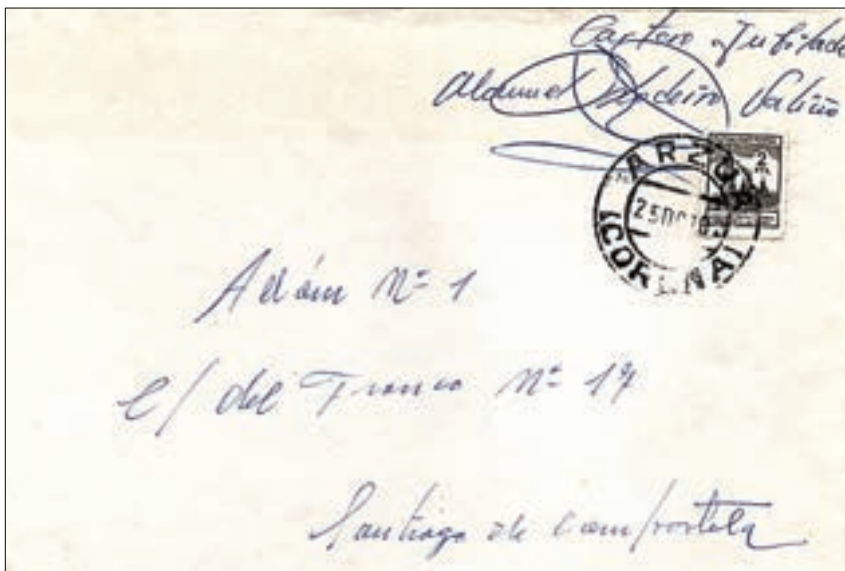 Cartero Jubilado
Manuel Valiño
ARZUA
2
25 DIC
(CORUÑA)
Adám Nº 1
C/ del Franco Nº 17
Santiago de Compostela